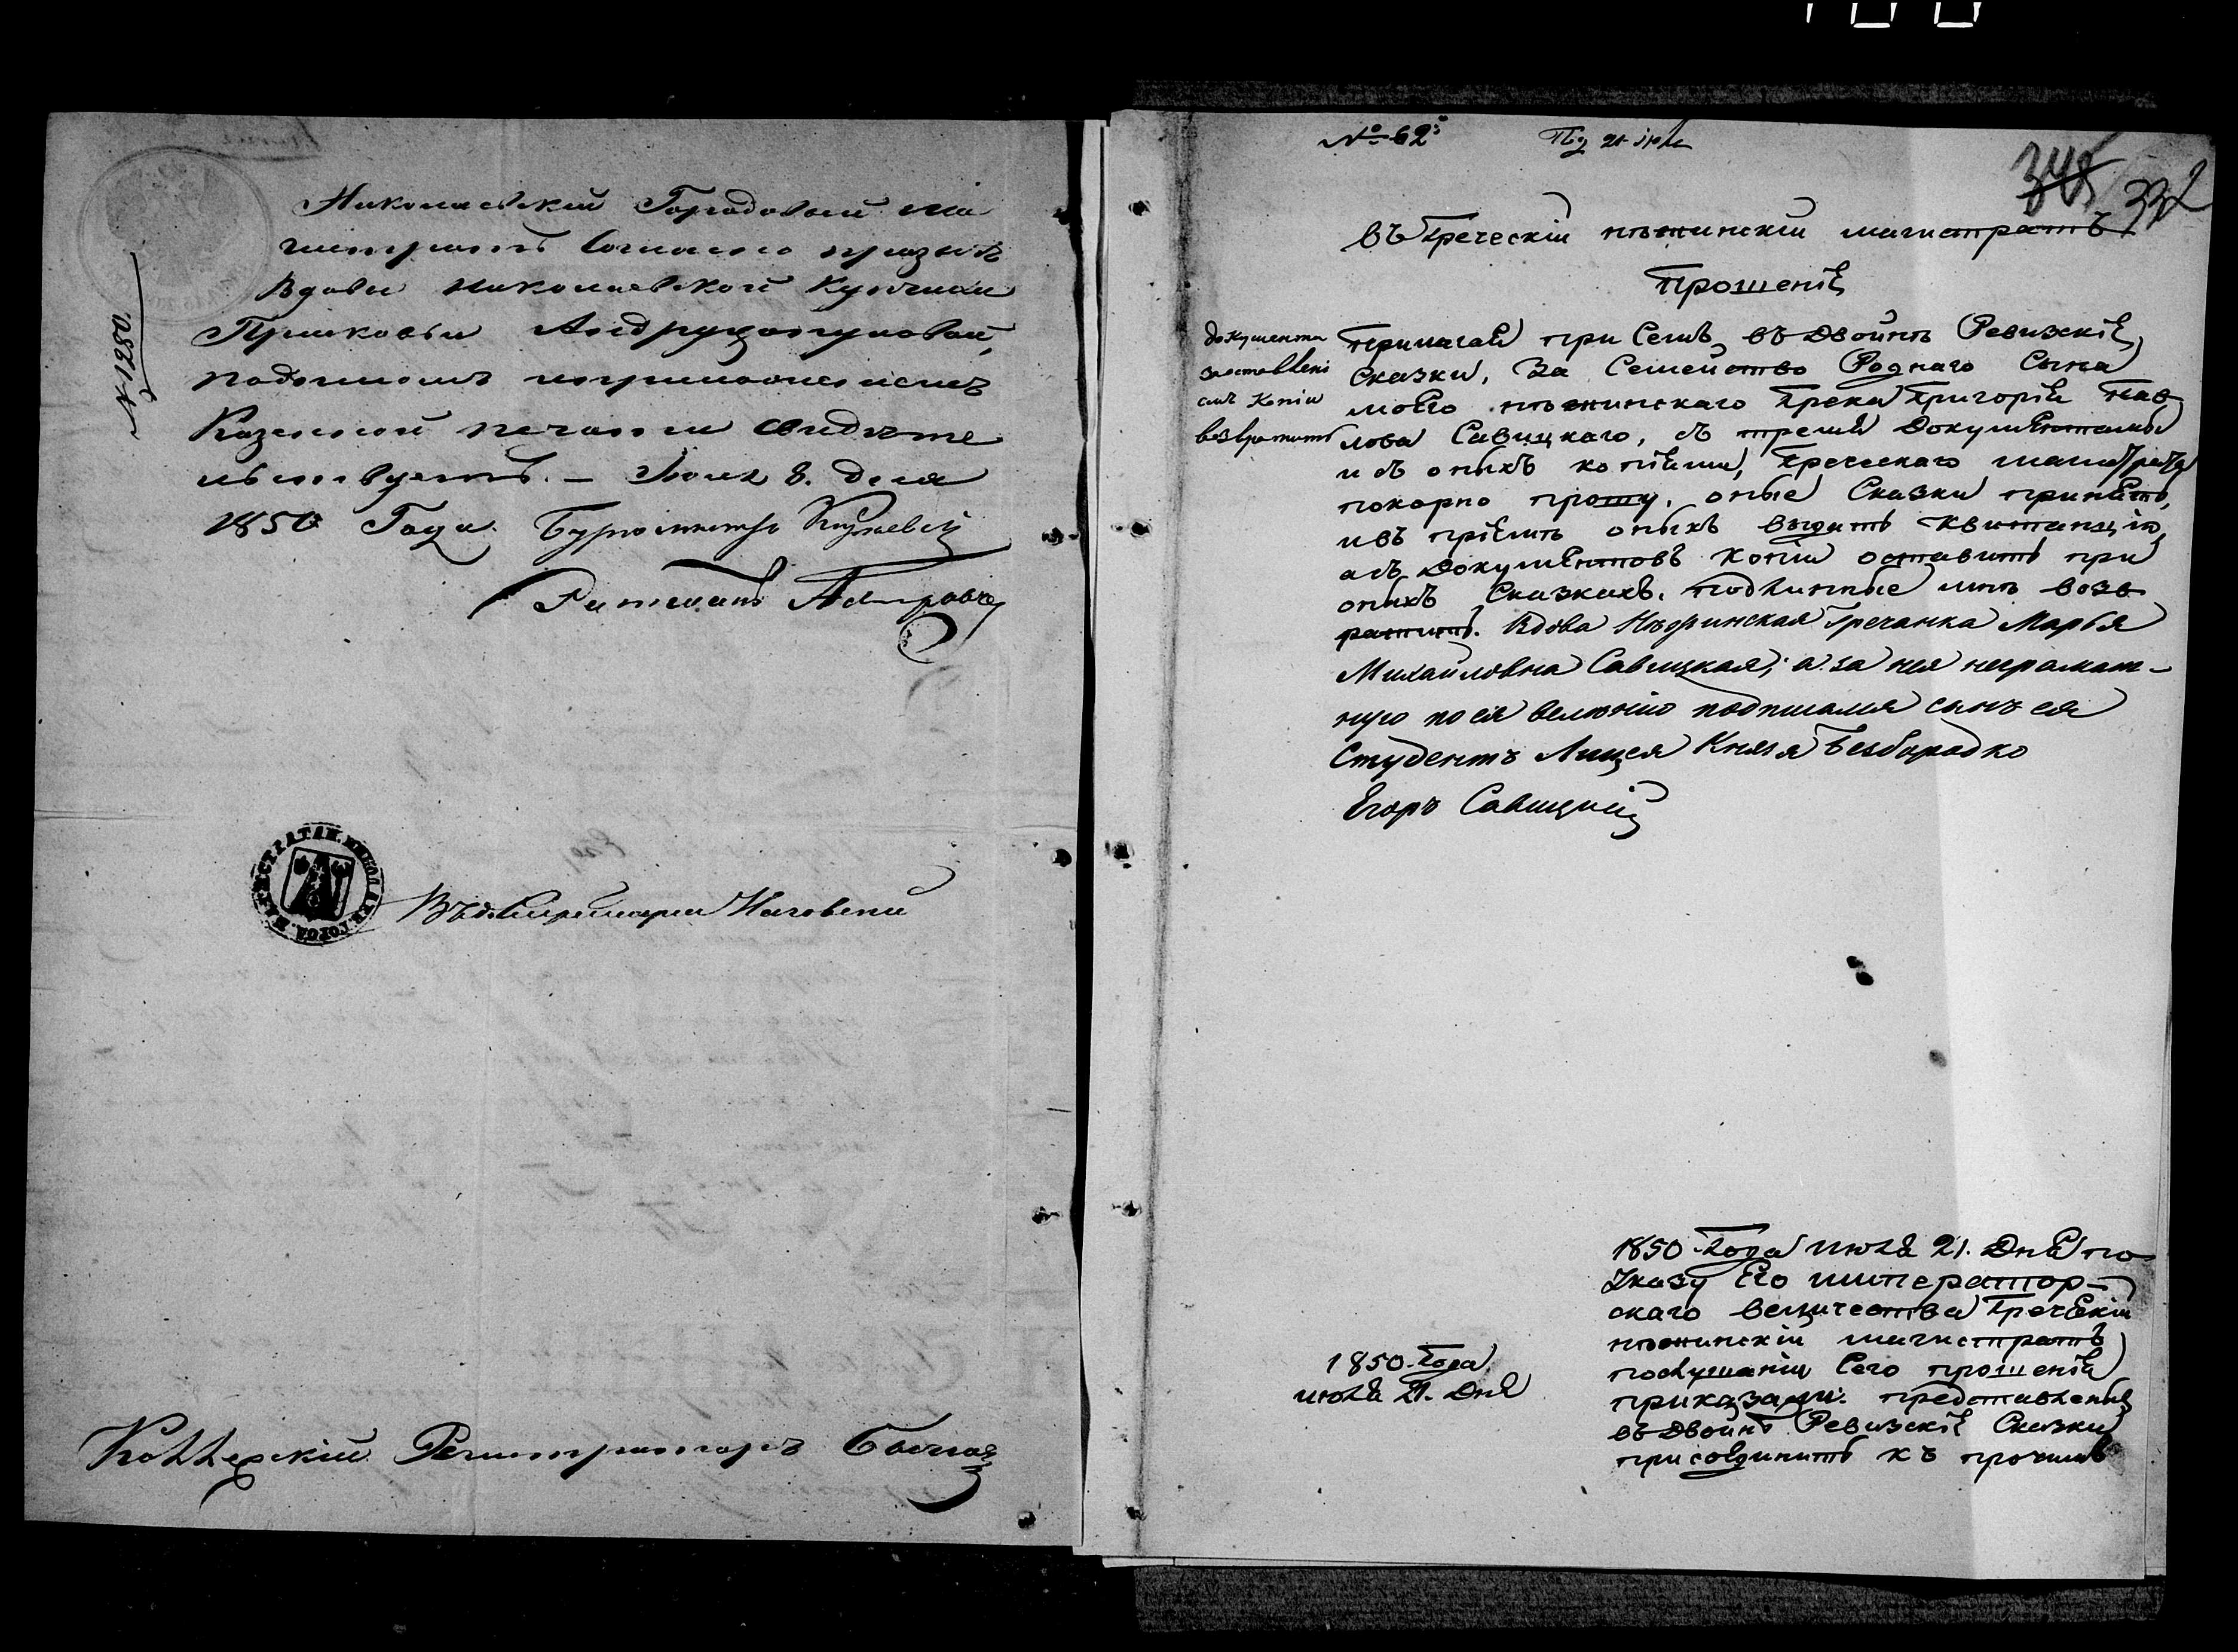 Николаевскій Городовый Ма
гистратъ Согласно прозьбѣ
Вдовы николаевской Купчихи
Прасковьи
подписомъ иприложеніемъ
Казенной печати свидѣте
льствуетъ. — Июля 8. дня
1850 Года. Бургомистръ
Ратманъ
№ 1280.
МАГИСТРАТАН. НИКОЛАЕВ. ГОРОД.
Коллежскій Регистраторъ
№ 62
332
въ Греческій нѣжинскій магистратъ
Прошеніе
Документы
заставлені
емъ Копіи
возвратить
Прилагая при Семъ въ двойнѣ Ревизскіе
Сказки, За Семейство Роднаго Сына
моего нѣжинскаго Грека Григорія Пав
лова Савицкаго, съ тремя Документами
и съ оныхъ копіями, Греческаго магистрата
покорно прошу, оные Сказки принять,
ивъ пріемѣ оныхъ выдать квитанцію,
асъ Документовъ копіи оставить при
оныхъ Сказкахъ. подлинные мнѣ возв
ратить. Вдова Нѣжинская Гречанка Марья
Михайловна Савицкая; а за нея неграмат-
ную по ея велѣнію подписался сынъ ея
Студентъ Лицея Князя Безбородко
Егоръ Савицкій
1850 Года июля 21. Дня по
Указу Его император-
скаго величества Греческій
нѣжинскій магистратъ
послушаніи Сего прошенія
приказали: представленые
въ двойнѣ Ревизскіе Сказки
присоединить къ прочимъ
1850. Года
июля 21. Дня